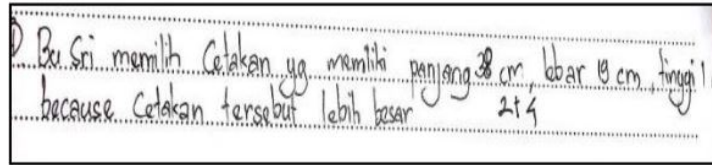 Bu Sri memilih Cetakan yg memiliki panjang 38 cm, lebar 19 cm, tinggi 1
because Cetakan tersebut lebih besar 2+4